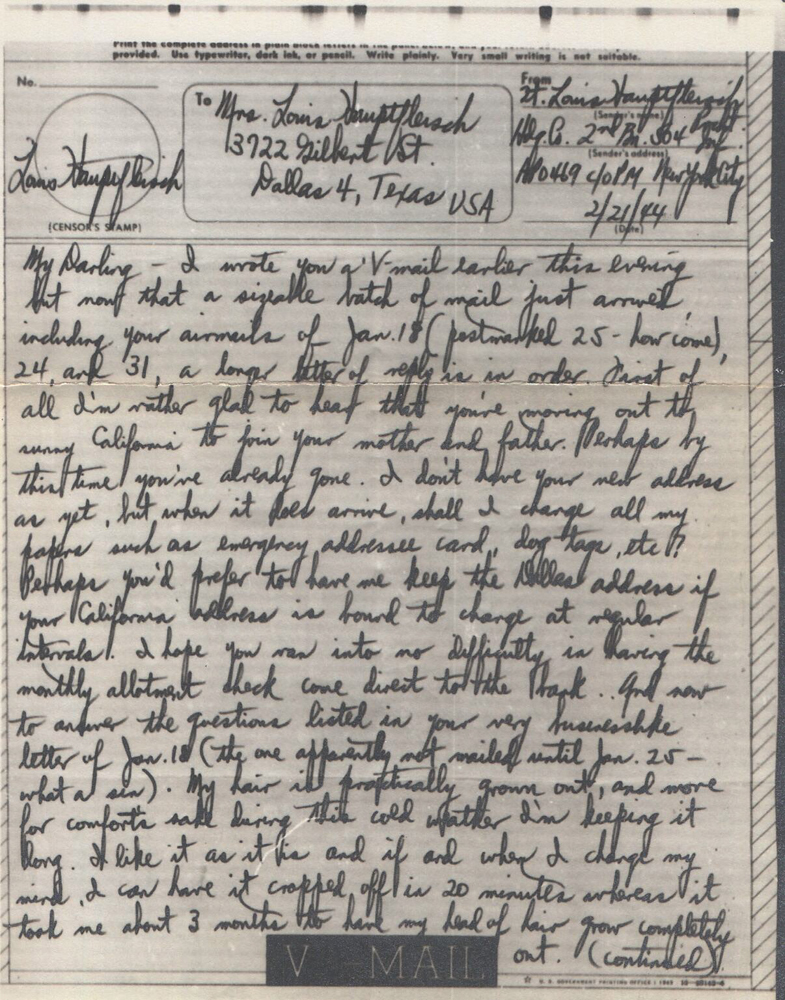 Print the complete address in plain block letters in the panel below, and
provided. Use typewriter, dark ink, or pencil. Write plainly. Very small writing is not suitable.
No.
(CENSOR'S STAMP)
Louis Hauptfleisch
To Mrs. Louis Hauptfleisch
3722 Gilbert St.
Dallas 4, Texas
USA
From
Lt. Louis Hauptfleisch
(Sender's name)
Hdq. Co. 2nd Bn. 504 Prcht Inf.
(Sender's address)
APO 469 c/o PM New York City
2/21/44
(Date)
My Darling - I wrote you a V-mail earlier this evening
but now that a sizeable batch of mail just arrived,
including your airmails of Jan. 18 (postmarked 25 - how come),
24, and 31, a longer letter of reply is in order. First of
all I'm rather glad to hear that you're moving out to
sunny California to join your mother and father. Perhaps by
this time you've already gone. I don't have your new address
as yet, but when it does arrive, shall I change all my
papers such as emergency addressee card, dog tags, etc?
Perhaps you'd prefer to have me keep the Dallas address if
your California address is bound to change at regular
intervals. I hope you ran into no difficulty in having the
monthly allotment check come direct to the bank.. And now
to answer the questions listed in your very businesslike
letter of Jan. 18 (the one apparently not mailed until Jan. 25 -
what a sin). My hair is practically grown out, and more
for comfort's sake during this cold weather I'm keeping it
long. I like it as it is and if and when I change my
mind, I can have it cropped off in 20 minutes whereas it
took me about 3 months to have my head of hair grow completely
out. (continued)
V MAIL
U. S. GOVERNMENT PRINTING OFFICE : 1943